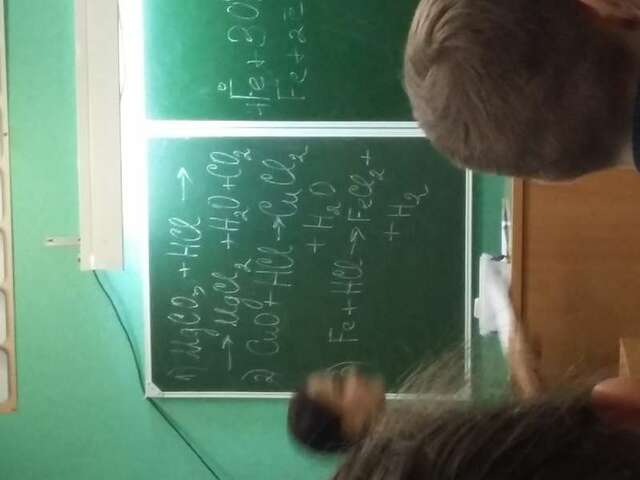 1) MgCO₃ + HCl →
→ MgCl₂ + H₂O + CO₂
2) CuO + HCl → CuCl₂
+ H₂O
3) Fe + HCl → FeCl₂ +
+ H₂
4Fe⁰ + 3O
Fe + 2ē